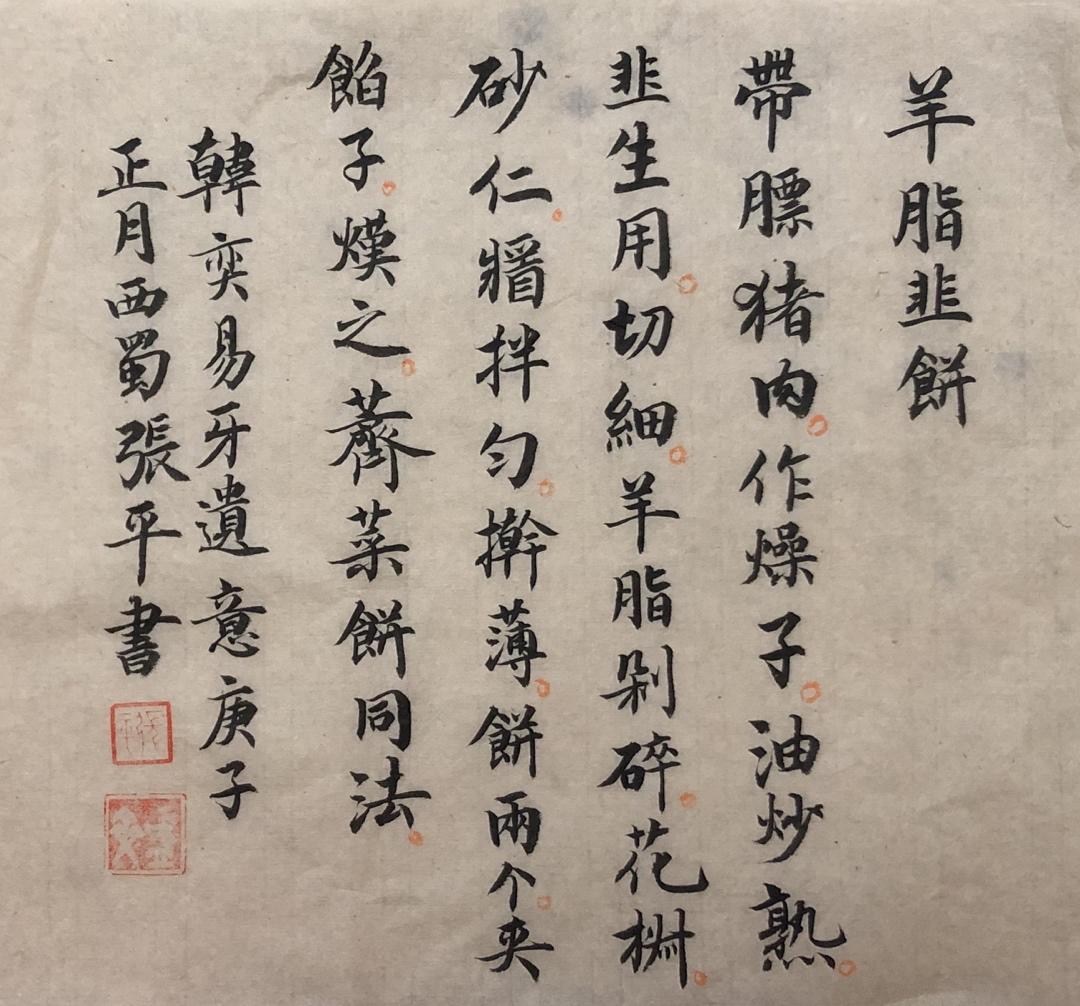 羊脂韭餅
帶膘猪肉。作燥子。油炒熟。
韭生用。切細。羊脂剁碎。花椒。
砂仁。醬拌勻。擀薄。餅兩个。夾
餡子。熯之。薺菜餅同法。
韓奕易牙遺意庚子
正月西蜀張平書